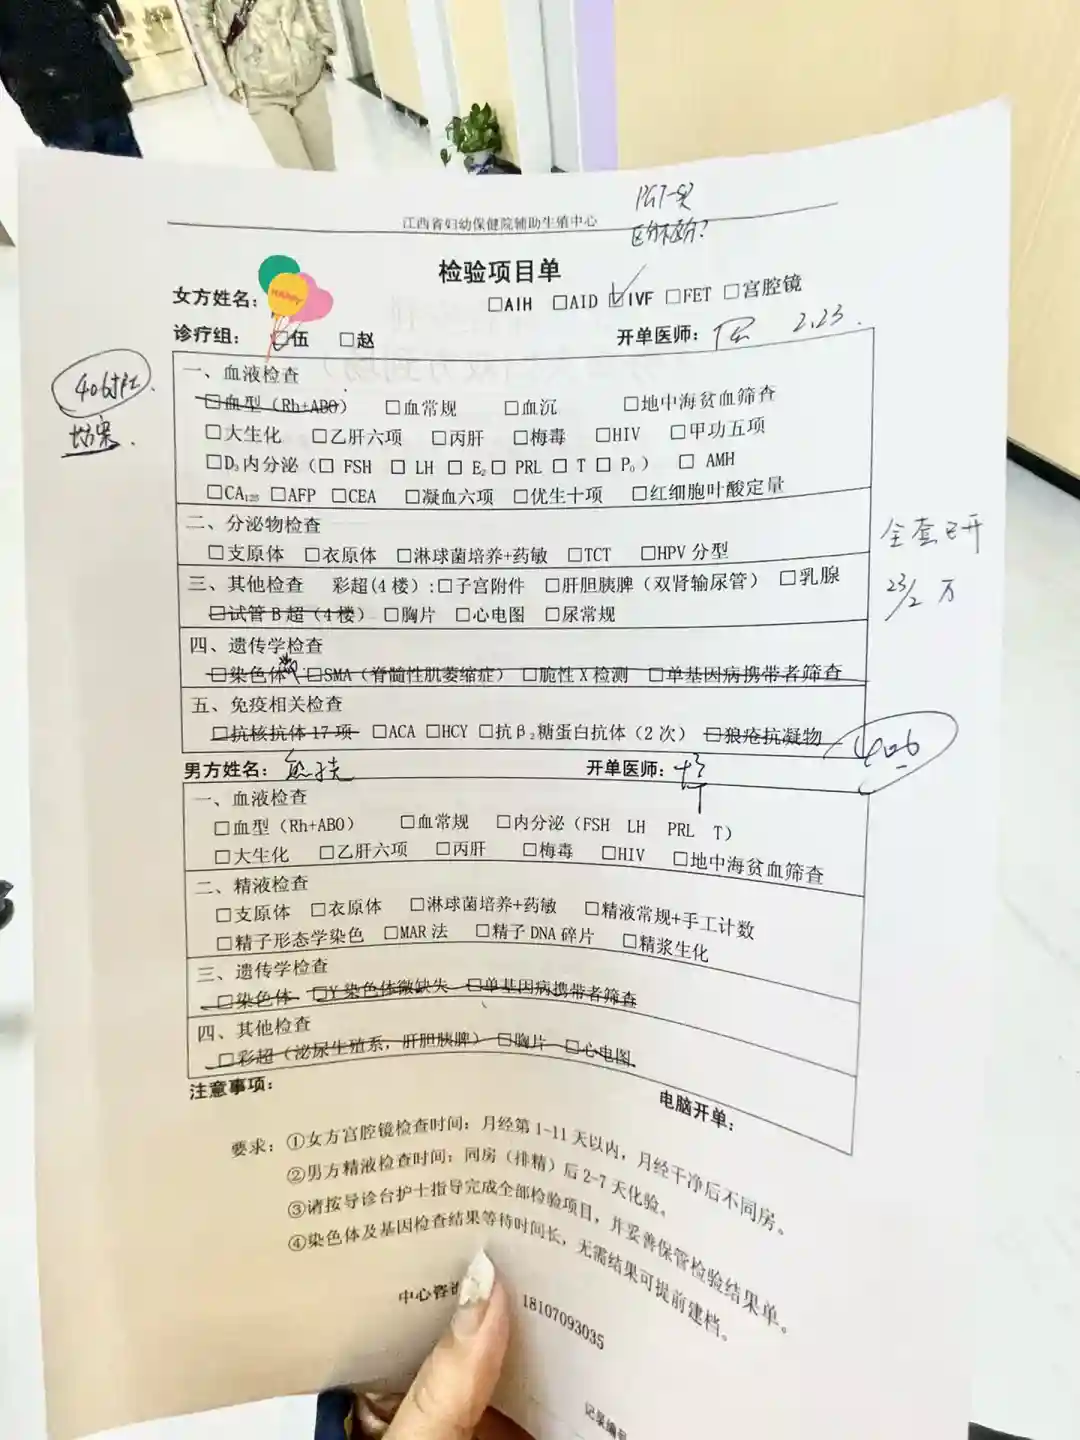 江西省妇幼保健院辅助生殖中心
PGT-
检验项目单
女方姓名：
HAPPY
□AIH □AID ☑IVF □FET □宫腔镜
诊疗组： ☑伍 □赵 开单医师： 2.23.
一、血液检查
□血型（Rh+ABO） □血常规 □血沉 □地中海贫血筛查
□大生化 □乙肝六项 □丙肝 □梅毒 □HIV □甲功五项
□D₃内分泌（□ FSH □ LH □ E₂□ PRL □ T □ P₀） □ AMH
□CA₁₂₅ □AFP □CEA □凝血六项 □优生十项 □红细胞叶酸定量
二、分泌物检查
□支原体 □衣原体 □淋球菌培养+药敏 □TCT □HPV 分型
全套已开
23/2 万
三、其他检查 彩超(4 楼):□子宫附件 □肝胆胰脾（双肾输尿管） □乳腺
□试管 B 超（4 楼） □胸片 □心电图 □尿常规
四、遗传学检查
□染色体 □SMA（脊髓性肌萎缩症） □脆性 X 检测 □单基因病携带者筛查
五、免疫相关检查
□抗核抗体 17 项 □ACA □HCY □抗β₂糖蛋白抗体（2 次） □狼疮抗凝物
406
男方姓名： 开单医师：
一、血液检查
□血型（Rh+ABO） □血常规 □内分泌（FSH LH PRL T）
□大生化 □乙肝六项 □丙肝 □梅毒 □HIV □地中海贫血筛查
二、精液检查
□支原体 □衣原体 □淋球菌培养+药敏 □精液常规+手工计数
□精子形态学染色 □MAR 法 □精子 DNA 碎片 □精浆生化
三、遗传学检查
□染色体 □Y 染色体微缺失 □单基因病携带者筛查
四、其他检查
□彩超（泌尿生殖系，肝胆胰脾） □胸片 □心电图
注意事项： 电脑开单：
要求：①女方宫腔镜检查时间：月经第 1-11 天以内，月经干净后不同房。
②男方精液检查时间：同房（排精）后 2-7 天化验。
③请按导诊台护士指导完成全部检验项目，并妥善保管检验结果单。
④染色体及基因检查结果等待时间长，无需结果可提前建档。
中心咨 18107093035
记录编号